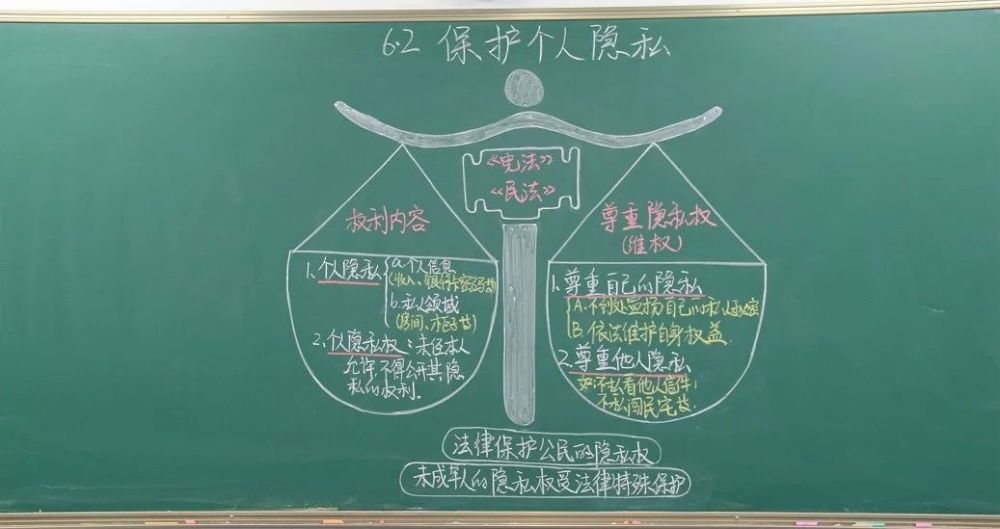 6.2 保护个人隐私
《宪法》
《民法》
权利内容
1、个人隐私
a.个人信息
(收入、银行卡密码等)
b.私人领域
(房间、日记等)
2、个人隐私权：未经本人
允许不得公开其隐
私的权利。
尊重隐私权
(维权)
1.尊重自己的隐私
A.不到处宣扬自己的私人秘密
B.依法维护自身权益
2.尊重他人隐私
如：不私看他人信件；
不私闯民宅等。
法律保护公民的隐私权
未成年人的隐私权受法律特殊保护